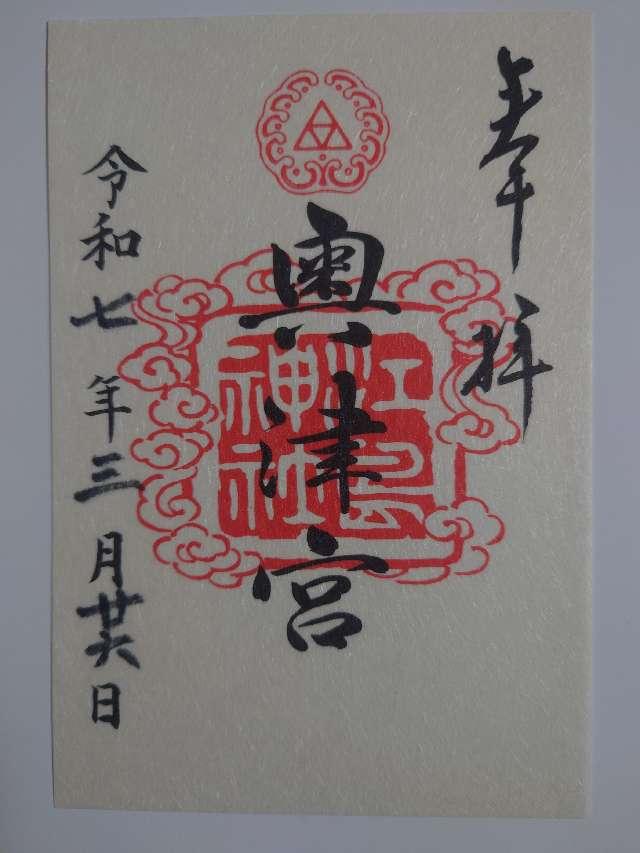 奉拝
奥津宮
江島
神社
令和七年三月廿六日